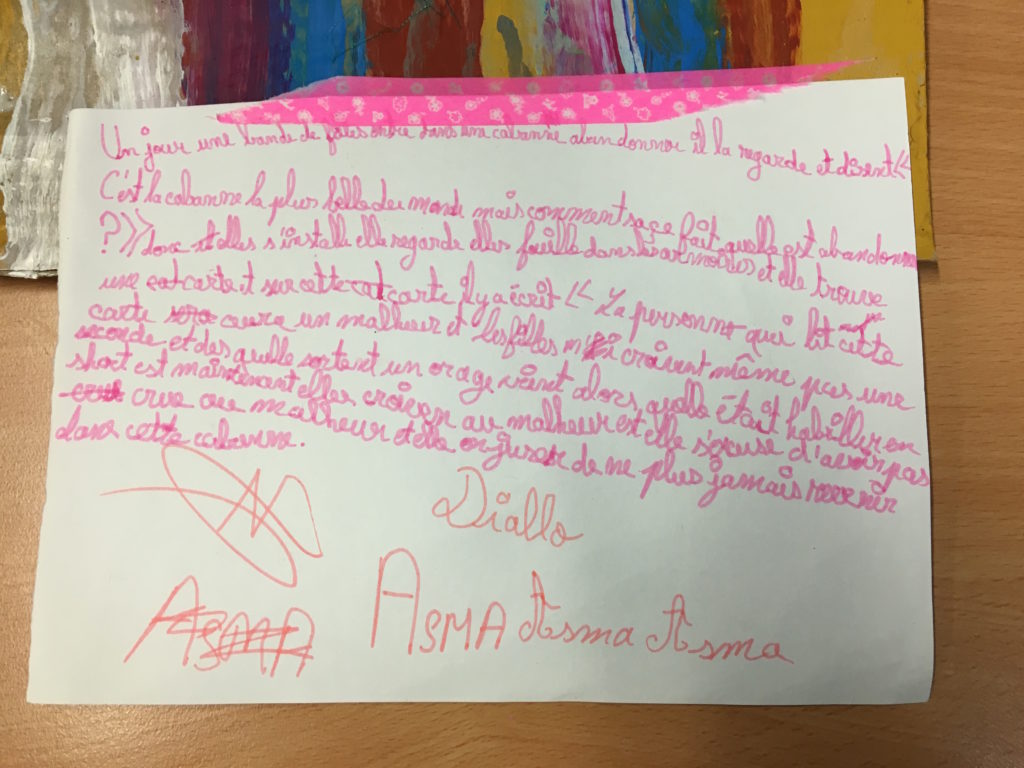 Un jour une bande de filles entre dans une cabanne abandonner il la regarde et disent «
C'est la cabanne la plus belle du monde mais comment sa ce fait quelle est abandonne
?» donc et elles s'installe elle regarde elles fouille dans les armoires et elle trouve
une cat carte et sur cette cat carte il y a écrit « La personne qui lit cette
carte sera aura un malheur et les filles n'i craivent même pas une
seconde et des quelle sortent un orage vient alors quelle était habiller en
short est maintenant elles croient au malheur est elle s'excuse d'avoir pas
crue au malheur et elle on jurer de ne plus jamais revenir
dans cette cabanne.
Diallo
ASMA ASMA Asma Asma